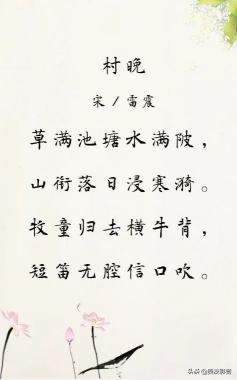 村晚
宋/雷震
草满池塘水满陂，
山衔落日浸寒漪。
牧童归去横牛背，
短笛无腔信口吹。